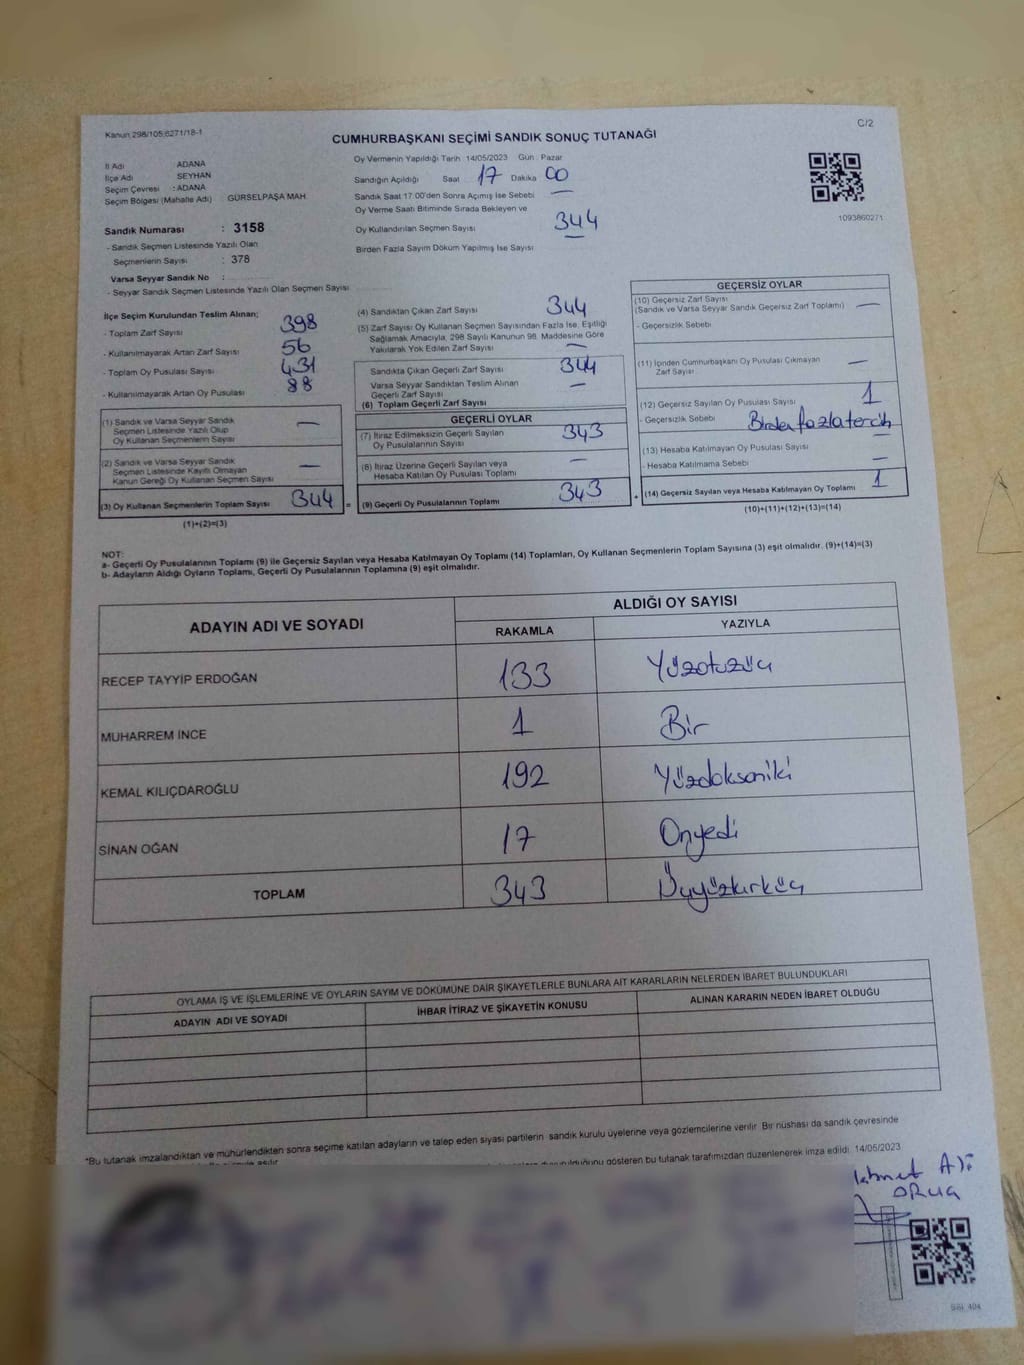 Kanun 298/105,6271/18-1
C/2
CUMHURBAŞKANI SEÇİMİ SANDIK SONUÇ TUTANAĞI
İl Adı ADANA
İlçe Adı SEYHAN
Seçim Çevresi : ADANA
Seçim Bölgesi (Mahalle Adı) GÜRSELPAŞA MAH.
Sandık Numarası : 3158
- Sandık Seçmen Listesinde Yazılı Olan
Seçmenlerin Sayısı : 378
Varsa Seyyar Sandık No :
- Seyyar Sandık Seçmen Listesinde Yazılı Olan Seçmen Sayısı
Oy Vermenin Yapıldığı Tarih 14/05/2023 Gün : Pazar
Sandığın Açıldığı Saat 17 Dakika 00
Sandık Saat 17:00'den Sonra Açımış İse Sebebi —
Oy Verme Saati Bitiminde Sırada Bekleyen ve
Oy Kullandırılan Seçmen Sayısı 344
Birden Fazla Sayım Döküm Yapılmış İse Sayısı —
1093860271
İlçe Seçim Kurulundan Teslim Alınan;
- Toplam Zarf Sayısı 398
- Kullanılmayarak Artan Zarf Sayısı 56
- Toplam Oy Pusulası Sayısı 431
- Kullanılmayarak Artan Oy Pusulası 88
(1) Sandık ve Varsa Seyyar Sandık
Seçmen Listesinde Yazılı Olup
Oy Kullanan Seçmenlerin Sayısı —
(2) Sandık ve Varsa Seyyar Sandık
Seçmen Listesinde Kayıtlı Olmayan
Kanun Gereği Oy Kullanan Seçmen Sayısı —
(3) Oy Kullanan Seçmenlerin Toplam Sayısı 344 =
(1)+(2)=(3)
(4) Sandıktan Çıkan Zarf Sayısı 344
(5) Zarf Sayısı Oy Kullanan Seçmen Sayısından Fazla İse, Eşitliği
Sağlamak Amacıyla, 298 Sayılı Kanunun 98. Maddesine Göre
Yakılarak Yok Edilen Zarf Sayısı —
Sandıkta Çıkan Geçerli Zarf Sayısı 344
Varsa Seyyar Sandıktan Teslim Alınan
Geçerli Zarf Sayısı —
(6) Toplam Geçerli Zarf Sayısı
GEÇERLİ OYLAR
(7) İtiraz Edilmeksizin Geçerli Sayılan
Oy Pusulalarının Sayısı 343
(8) İtiraz Üzerine Geçerli Sayılan veya
Hesaba Katılan Oy Pusulası Toplamı —
(9) Geçerli Oy Pusulalarının Toplamı 343 +
GEÇERSİZ OYLAR
(10) Geçersiz Zarf Sayısı
(Sandık ve Varsa Seyyar Sandık Geçersiz Zarf Toplamı) —
- Geçersizlik Sebebi
(11) İçinden Cumhurbaşkanı Oy Pusulası Çıkmayan
Zarf Sayısı —
(12) Geçersiz Sayılan Oy Pusulası Sayısı 1
- Geçersizlik Sebebi Birden fazla tercih
(13) Hesaba Katılmayan Oy Pusulası Sayısı —
- Hesaba Katılmama Sebebi —
(14) Geçersiz Sayılan veya Hesaba Katılmayan Oy Toplamı 1
(10)+(11)+(12)+(13)=(14)
NOT:
a- Geçerli Oy Pusulalarının Toplamı (9) ile Geçersiz Sayılan veya Hesaba Katılmayan Oy Toplamı (14) Toplamları, Oy Kullanan Seçmenlerin Toplam Sayısına (3) eşit olmalıdır. (9)+(14)=(3)
b- Adayların Aldığı Oyların Toplamı, Geçerli Oy Pusulalarının Toplamına (9) eşit olmalıdır.
ADAYIN ADI VE SOYADI
ALDIĞI OY SAYISI
RAKAMLA YAZIYLA
RECEP TAYYİP ERDOĞAN 133 Yüzotuzüç
MUHARREM İNCE 1 Bir
KEMAL KILIÇDAROĞLU 192 Yüzdoksaniki
SİNAN OĞAN 17 Onyedi
TOPLAM 343 Üçyüzkırküç
OYLAMA İŞ VE İŞLEMLERİNE VE OYLARIN SAYIM VE DÖKÜMÜNE DAİR ŞİKAYETLERLE BUNLARA AİT KARARLARIN NELERDEN İBARET BULUNDUKLARI
ADAYIN ADI VE SOYADI İHBAR İTİRAZ VE ŞİKAYETİN KONUSU ALINAN KARARIN NEDEN İBARET OLDUĞU
*Bu tutanak imzalandıktan ve mühürlendikten sonra seçime katılan adayların ve talep eden siyasi partilerin sandık kurulu üyelerine veya gözlemcilerine verilir. Bir nüshası da sandık çevresinde
duyurulduğunu gösteren bu tutanak tarafımızdan düzenlenerek imza edildi. 14/05/2023